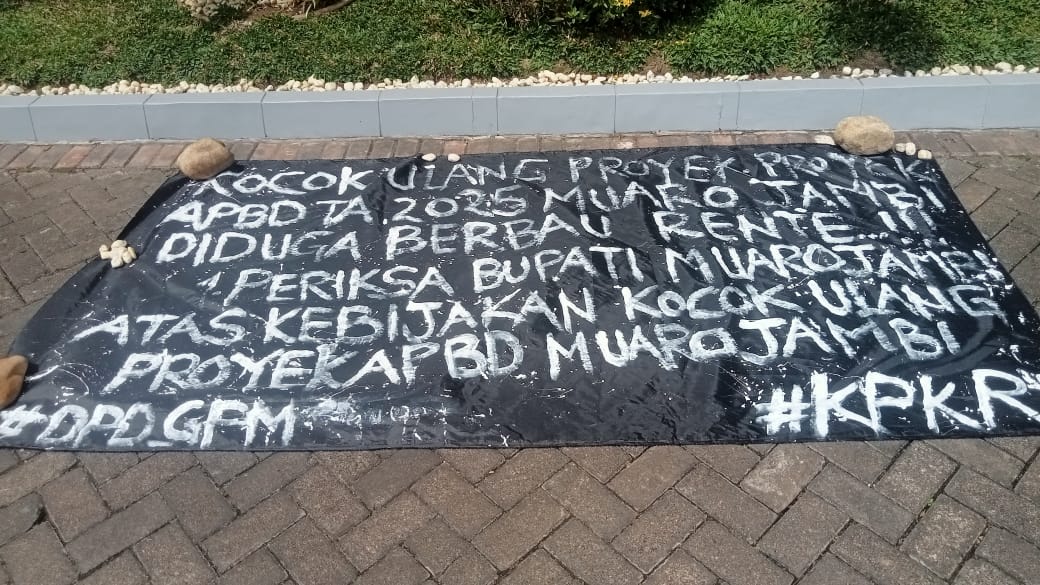 KOCOK ULANG PROYEK PROYEK
APBD TA 2025 MUARO JAMBI
DIDUGA BERBAU RENTE...!!!
PERIKSA BUPATI MUAROJAMBI
ATAS KEBIJAKAN KOCOK ULANG
PROYEK APBD MUARO JAMBI
#DPD_GPM #KPKR